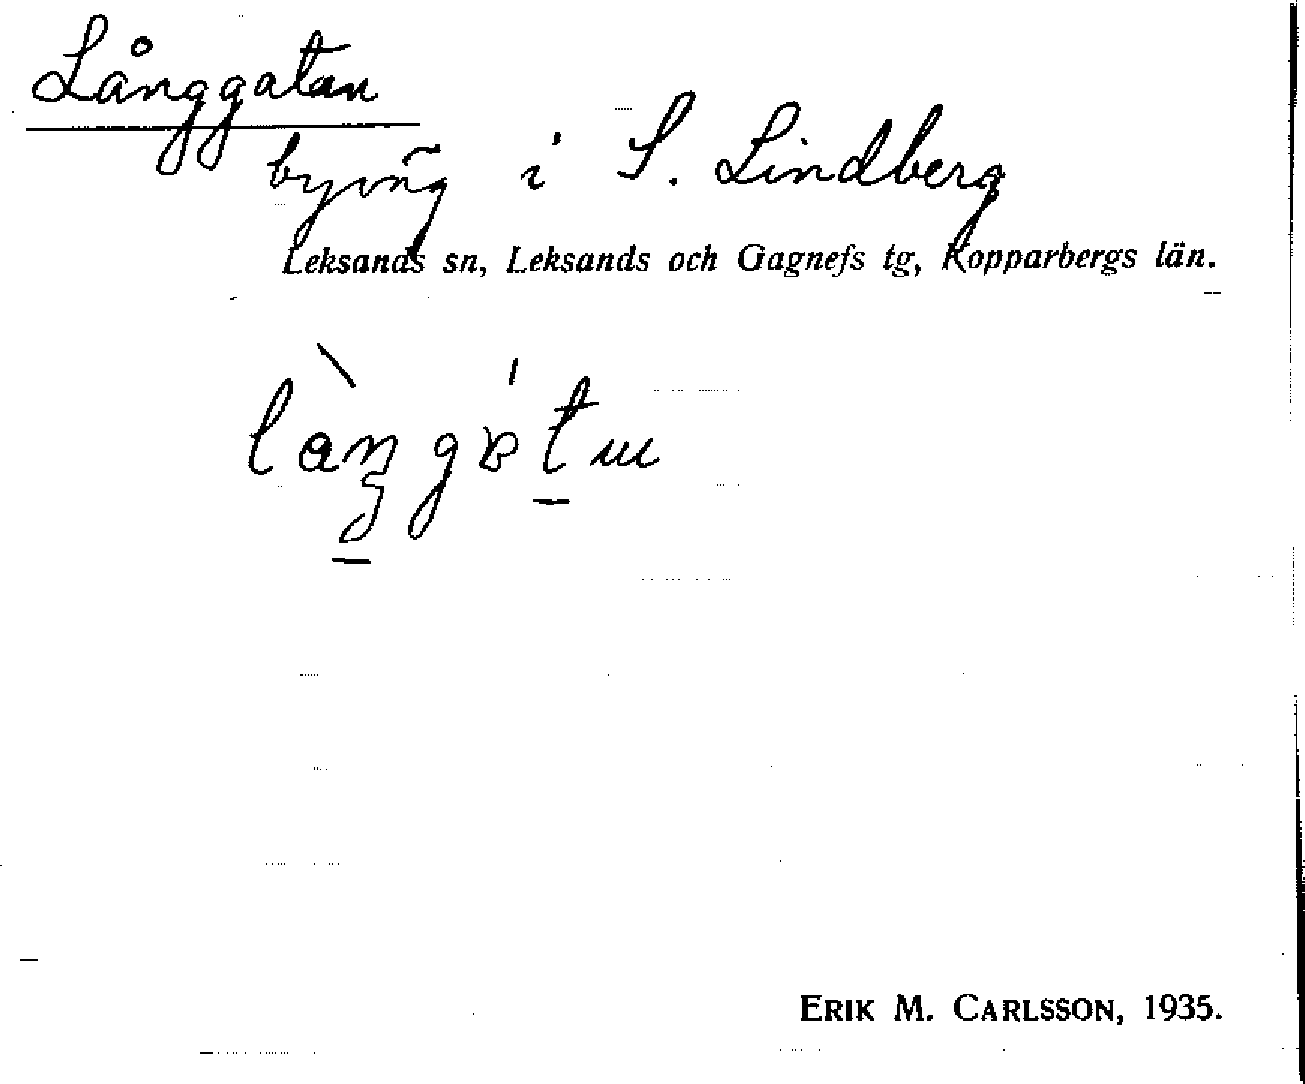 Långgatan
byväg i S. Lindberg
Leksands sn, Leksands och Gagnefs tg, Kopparbergs län.
ERIK M. CARLSSON, 1935.